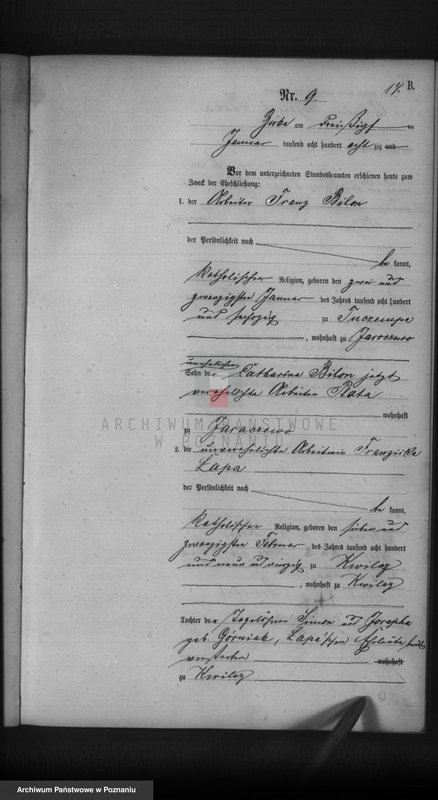 B.
17.
Nr. 9.
Zirke am dreißigsten
Januar tausend acht hundert acht zig und
Vor dem unterzeichneten Standesbeamten erschienen heute zum
Zweck der Eheschließung:
1. der Arbeiter Franz Bilon
der Persönlichkeit nach
be kannt,
katholischer Religion, geboren den zwei und
zwanzigsten Januar des Jahres tausend acht hundert
und sechzig zu
, wohnhaft zu
unehelicher
Sohn der Catharina Bilon jetzt
verehelichte Arbeiter
wohnhaft
zu Jaraczewo
2. die unverehelichte Arbeiterin Franziska
Lapa
der Persönlichkeit nach
be kannt,
katholischer Religion, geboren den sieben und
zwanzigsten Februar des Jahres tausend acht hundert
und neun und zu Kwilcz
, wohnhaft zu Kwilcz
Tochter der Tagelöhner Simon und Josepha
geb. Górniak, Lapa'schen Eheleute, beide
verstorben wohnhaft
zu Kwilcz
ARCHIWUM PAŃSTWOWE
W POZNANIU
Archiwum Państwowe w Poznaniu